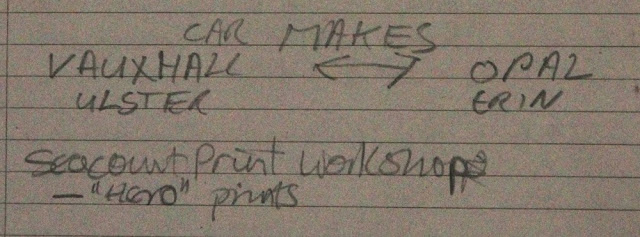 CAR MAKES
VAUXHALL ↔ OPAL
ULSTER ERIN
Seacourt Print Workshop
— "Hero" prints